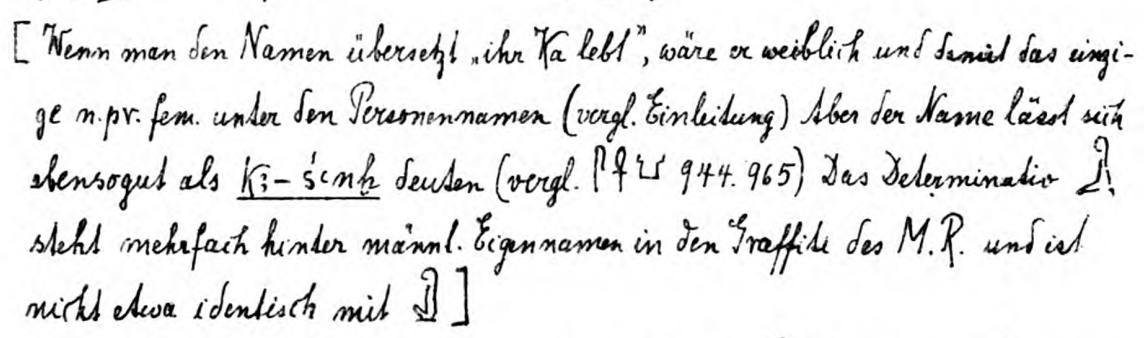 [ Wenn man den Namen übersetzt „ihr Ka lebt", wäre er weiblich und damit das einzi-
ge n.pr. fem. unter den Personennamen (vergl. Einleitung) Aber der Name lässt sich
ebensogut als kꜣ-śꜥnḫ deuten (vergl. 𓋴𓋹𓂓 944. 965) Das Determinativ
steht mehrfach hinter männl. Eigennamen in den Graffiti des M.R. und ist
nicht etwa identisch mit ]